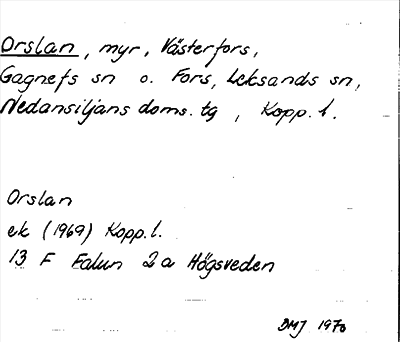 Orslan, myr, Västerfors,
Gagnefs sn o. Fors, Leksands sn,
Nedansiljans doms. tg, Kopp. l.
Orslan
ek (1969) Kopp. l.
13 F Falun 2a Högsveden
DMJ 1970